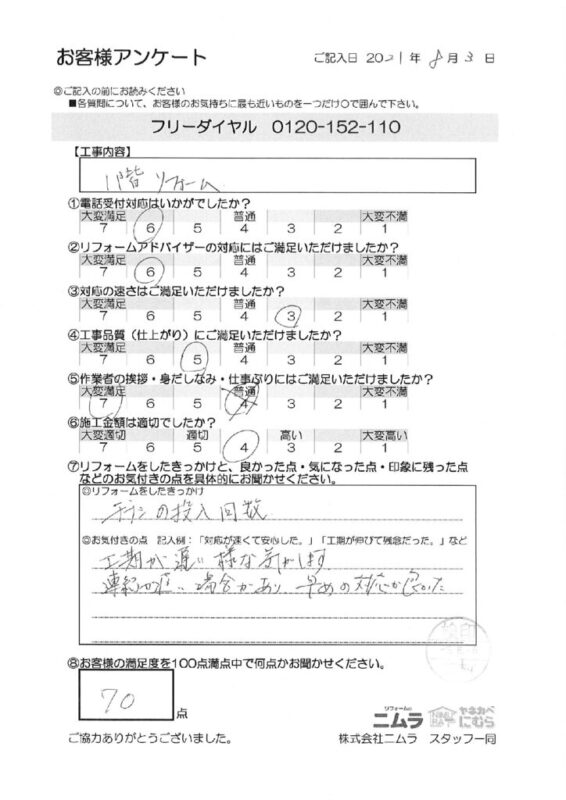 お客様アンケート
ご記入日 2021年 8月 3日
◎ご記入の前にお読みください
■各質問について、お客様のお気持ちに最も近いものを一つだけ○で囲んで下さい。
フリーダイヤル 0120-152-110
【工事内容】
1階 リフォーム
①電話受付対応はいかがでしたか？
大変満足 普通 大変不満
7 6 5 4 3 2 1
②リフォームアドバイザーの対応にはご満足いただけましたか？
大変満足 普通 大変不満
7 6 5 4 3 2 1
③対応の速さはご満足いただけましたか？
大変満足 普通 大変不満
7 6 5 4 3 2 1
④工事品質（仕上がり）にご満足いただけましたか？
大変満足 普通 大変不満
7 6 5 4 3 2 1
⑤作業者の挨拶・身だしなみ・仕事ぶりにはご満足いただけましたか？
大変満足 普通 大変不満
7 6 5 4 3 2 1
⑥施工金額は適切でしたか？
大変適切 適切 高い 大変高い
7 6 5 4 3 2 1
⑦リフォームをしたきっかけと、良かった点・気になった点・印象に残った点
などのお気付きの点を具体的にお聞かせください。
◎リフォームをしたきっかけ
チラシの投入回数
◎お気付きの点 記入例：「対応が速くて安心した。」「工期が伸びて残念だった。」など
工期が遅い様な気がします
連絡が遅い場合があり 早めの対応が良かった
⑧お客様の満足度を100点満点中で何点かお聞かせください。
70
点
リフォームの
ニムラ
ヤネカベ
にむら
ご協力ありがとうございました。
株式会社ニムラ スタッフ一同